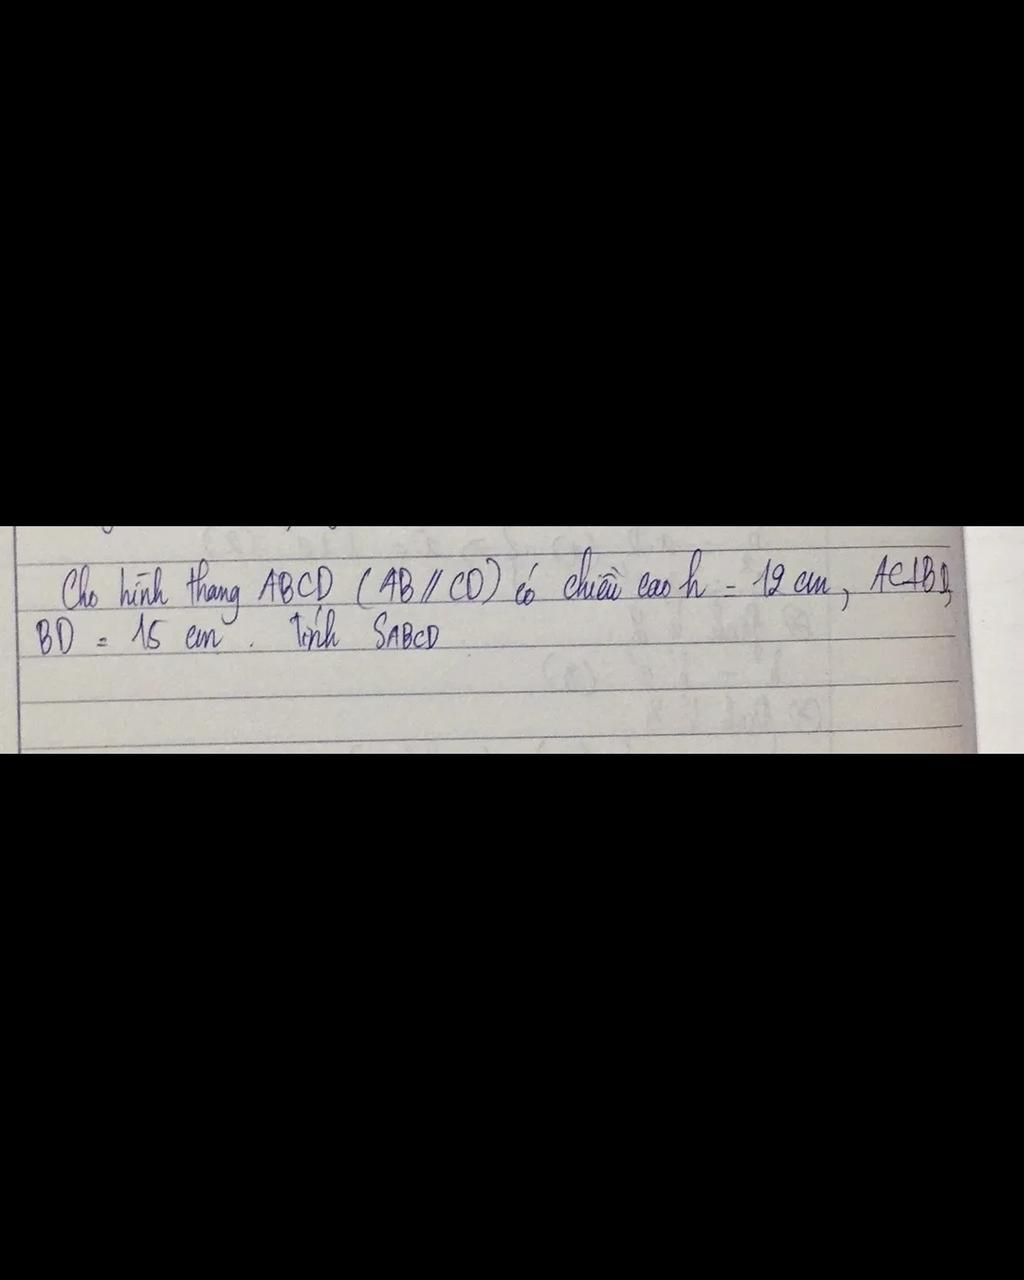 Cho hình thang ABCD ( AB // CD ) có chiều cao h = 12 cm, AC⊥BD,
BD = 15 cm . Tính SABCD